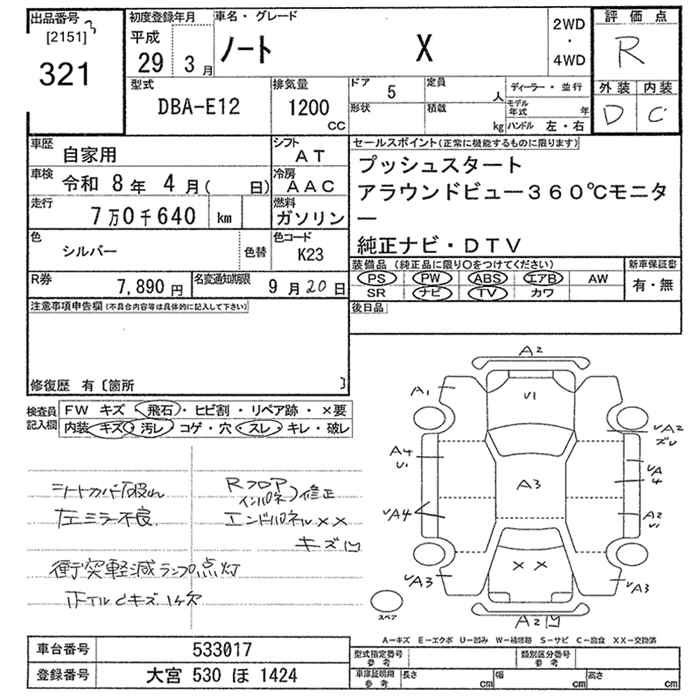 出品番号
[2151] 3
321
初度登録年月
平成
29 3月
車名・グレード
ノート X
2WD
・
4WD
評価点
R
外装 内装
D C
型式
DBA-E12
排気量
1200
CC
ドア 5
定員 人
形状
積載 kg
ディーラー・並行
モデル年式 年
ハンドル 左・右
車歴
自家用
シフト
AT
車検
令和 8年 4月( 日)
冷房
AAC
走行
7万0千640 km
燃料
ガソリン
色
シルバー
色替
色コード
K23
R券
7,890円
名変通知期限
9月20日
セールスポイント(正常に機能するものに限ります)
プッシュスタート
アラウンドビュー360℃モニタ
ー
純正ナビ・DTV
装備品 (純正品に限り○をつけてください)
PS PW ABS エアB AW
SR ナビ TV カワ
新車保証書
有・無
後日品
注意事項申告欄(不具合内容等は具体的に記入して下さい)
修復歴 有〔箇所 〕
検査員
記入欄
FW キズ・飛石・ヒビ割・リペア跡・×要
内装・キズ・汚レ・コゲ・穴・スレ・キレ・破レ
シートカバー
左ミラー不良
衝突軽減ランプ点灯
下イルヒキズ
Rフロア
インパネ 修正
エンドパネル××
キズ凹
A2
A1
U1
√A2
ズレ
A4
U1
√A
4
A3
√A4
A2
U1
××
√A3
√A3
A2凹
スペア
A-キズ E-エクボ U-凹み W-補修跡 S-サビ C-腐食 XX-交換済
車台番号 533017
登録番号 大宮 530 ほ 1424
型式指定番号
参考
類別区分番号
参考
車庫証明用
参考
長さ cm
幅 cm
高さ cm